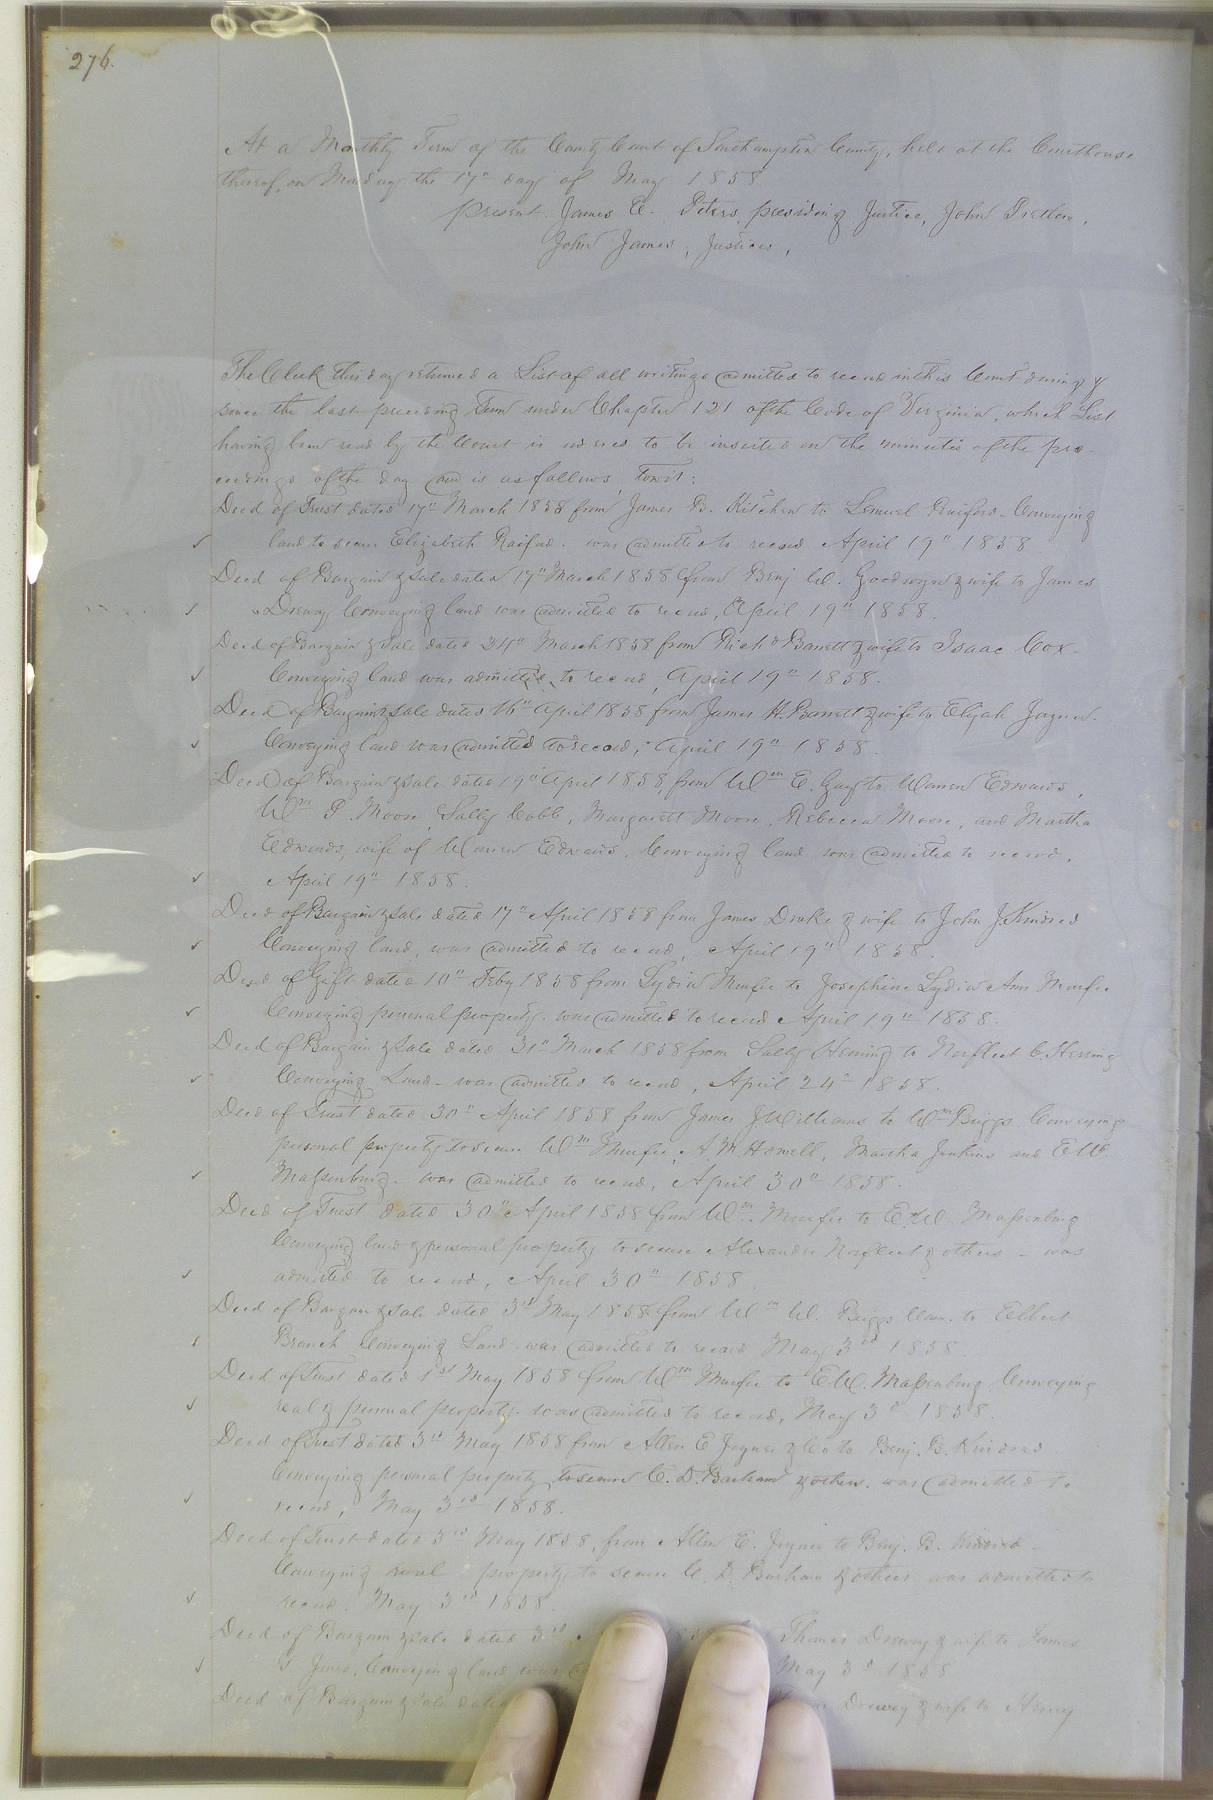 276.
At a Monthly Term of the County Court of Southampton County, held at the Courthouse
thereof, on Monday the 17th day of May 1858
present. James E. Peters, presiding Justice, John Pretlow,
John James, Justices,
The Clerk this day returned a List of all writings admitted to record in this Court during &
since the last preceding Term under Chapter 121 of the Code of Virginia, which List
having been read by the Court is ordered to be inserted on the minutes of the pro-
ceedings of the day and is as follows, towit:
Deed of Trust dated 17th March 1858 from James B. Kitchen to Lemuel Conveying
land to secure Elizabeth Raiford. was admitted to record April 19th 1858
Deed of Bargain & Sale dated 17th March 1858 from Benj W. Goodwyn & wife to James
Drewry Conveying land was admitted to record, April 19th 1858.
Deed of Bargain & Sale dated 24th March 1858 from Richd Barrett & wife to Isaac Cox-
Conveying land was admitted to record, April 19th 1858.
Deed of Bargain & Sale dated 16th April 1858 from James H. Barrett & wife to Elijah Joyner.
Conveying land was admitted to record, April 19th 1858.
Deed of Bargain & Sale dated 19th April 1858, from Wm E. Gay to Warren Edwards,
Wm P. Moore, Sally Cobb, Margarett Moore, Rebecca Moore, and Martha
Edwards, wife of Warren Edwards, Conveying land was admitted to record,
April 19th 1858.
Deed of Bargain & Sale dated 17th April 1858 from James Drake & wife to John J. Kindred
Conveying land, was admitted to record, April 19th 1858.
Deed of Gift dated 10th Feby 1858 from Lydia Murfee to Josephine Lydia Ann Murfee
Conveying personal property. was admitted to record April 19th 1858.
Deed of Bargain & Sale dated 31st March 1858 from Sally Herring to Norfleet C. Herring
Conveying Land- was admitted to record, April 24th 1858.
Deed of Trust dated 30th April 1858 from James J Williams to Wm Briggs Conveying
personal property to secure Wm Murfee, A. M. Howell, Martha Jenkins and E W.
Massenburg. was admitted to record, April 30th 1858.
Deed of Trust dated 30th April 1858 from Wm. Murfee to E. W. Massenburg
Conveying land & personal property to secure Alexander Norfleet & others - was
admitted to record, April 30th 1858
Deed of Bargain & Sale dated 3rd May 1858 from Wm W. Briggs to Elbert
Branch Conveying Land was admitted to record May 3rd 1858.
Deed of Trust dated 1st May 1858 from Wm Murfee to E W. Massenburg Conveying
real & personal property. was admitted to record, May 3d 1858.
Deed of Trust dated 3rd May 1858 from Allen E Joyner & Co to Benj. B. Kindred
Conveying personal property to secure C. D. Barham & others. was admitted to
record, May 3rd 1858.
Deed of Trust dated 3rd May 1858, from Allen E. Joyner to Benj. B. Kindred-
Conveying real property to secure C. D. Barham & others was admitted to
record. May 3rd 1858.
Deed of Bargain & Sale dated 3rd Thomas Drewry & wife to James
Jones, Conveying land was May 3d 1858
Deed of Bargain & Sale dated Drewry & wife to Henry